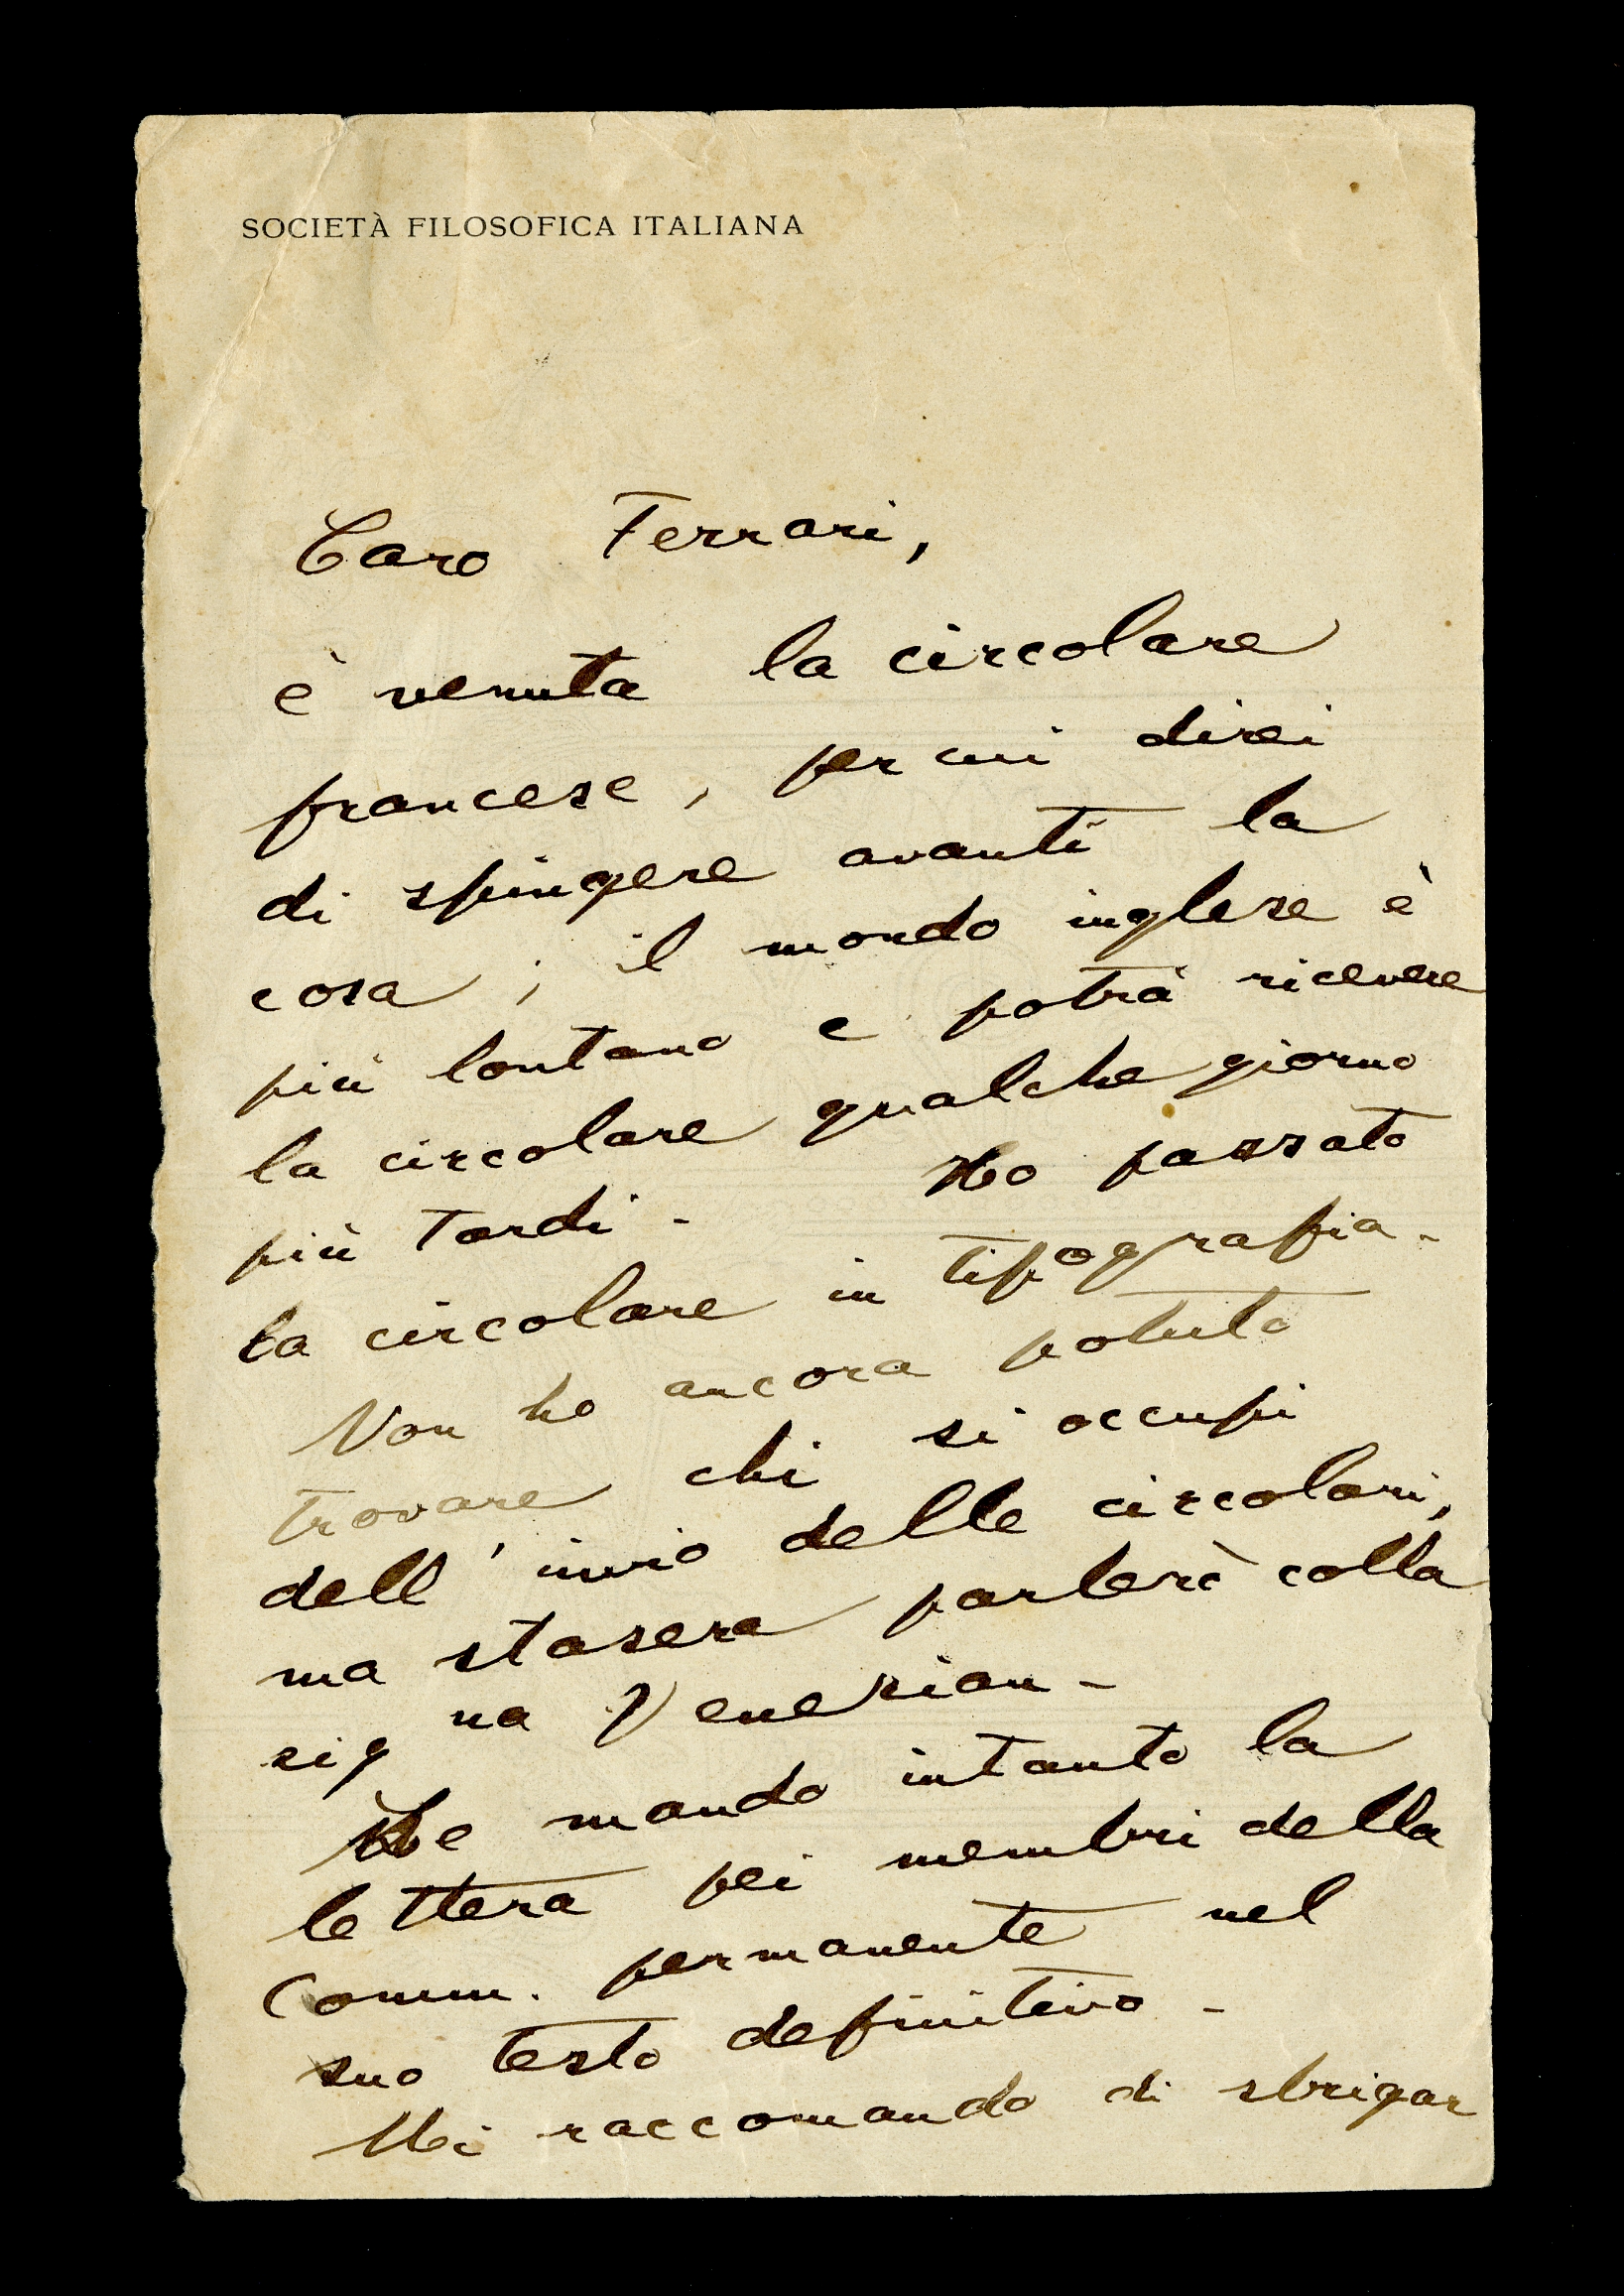 SOCIETÀ FILOSOFICA ITALIANA
Caro Ferrari,
è venuta la circolare
francese, per cui direi
di spingere avanti la
cosa; il mondo inglese è
più lontano e potrà ricevere
la circolare qualche giorno
più tardi - Ho passato
la circolare in tipografia -
Non ho ancora potuto
trovare chi si occupi
dell'invio delle circolari,
ma stasera parlerò colla
signa Venezian -
Le mando intanto la
lettera pei membri della
Comm. permanente nel
suo testo definitivo -
Mi raccomando di sbrigar